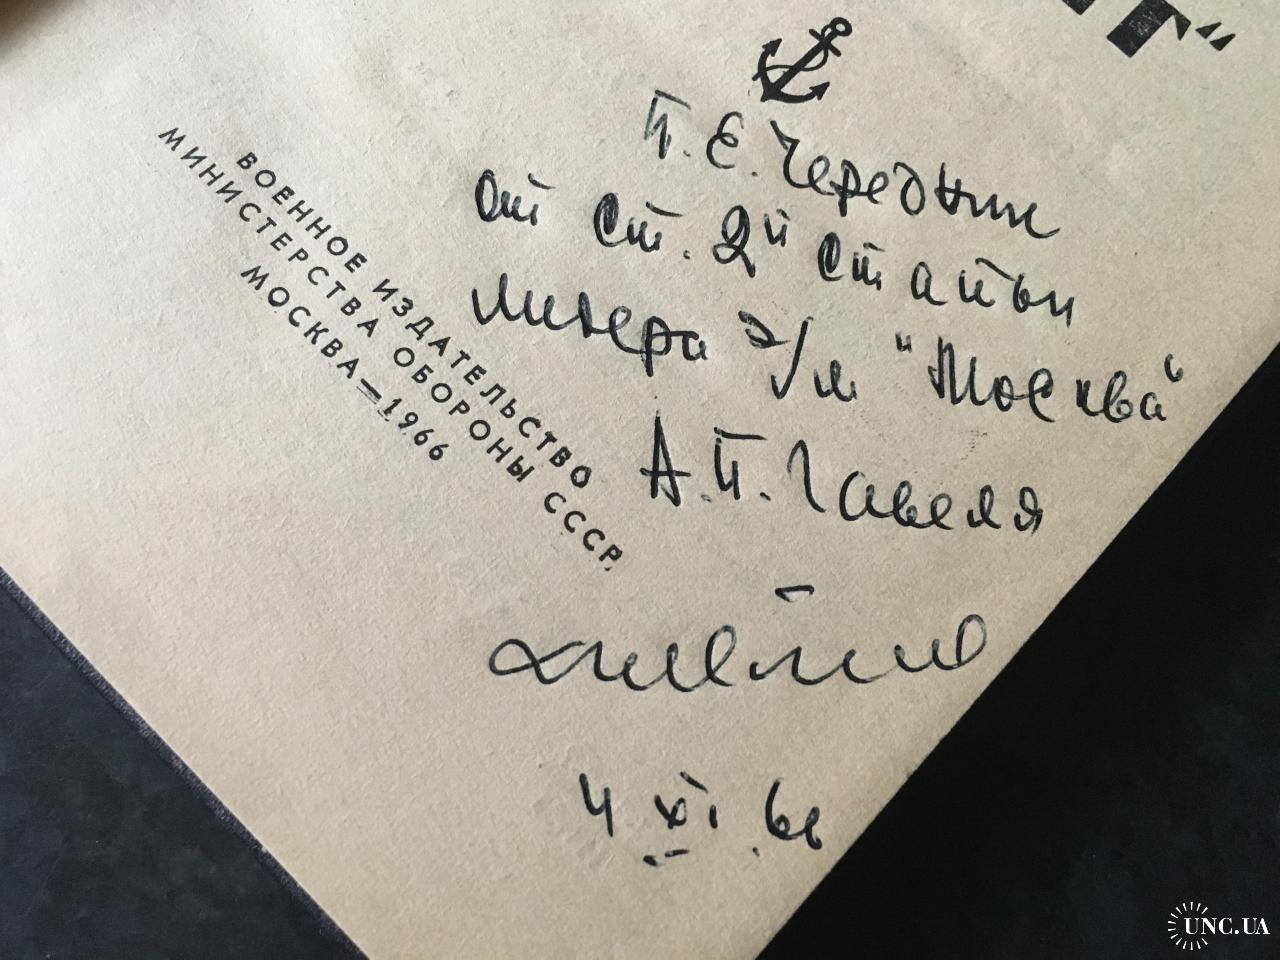 Г“
П. Е. Чередник
от ст. 2й статьи
лидера э/м "Москва"
А. П. Гавеля
4 XI 66
ВОЕННОЕ ИЗДАТЕЛЬСТВО
МИНИСТЕРСТВА ОБОРОНЫ СССР
МОСКВА—1966
UNC.UA